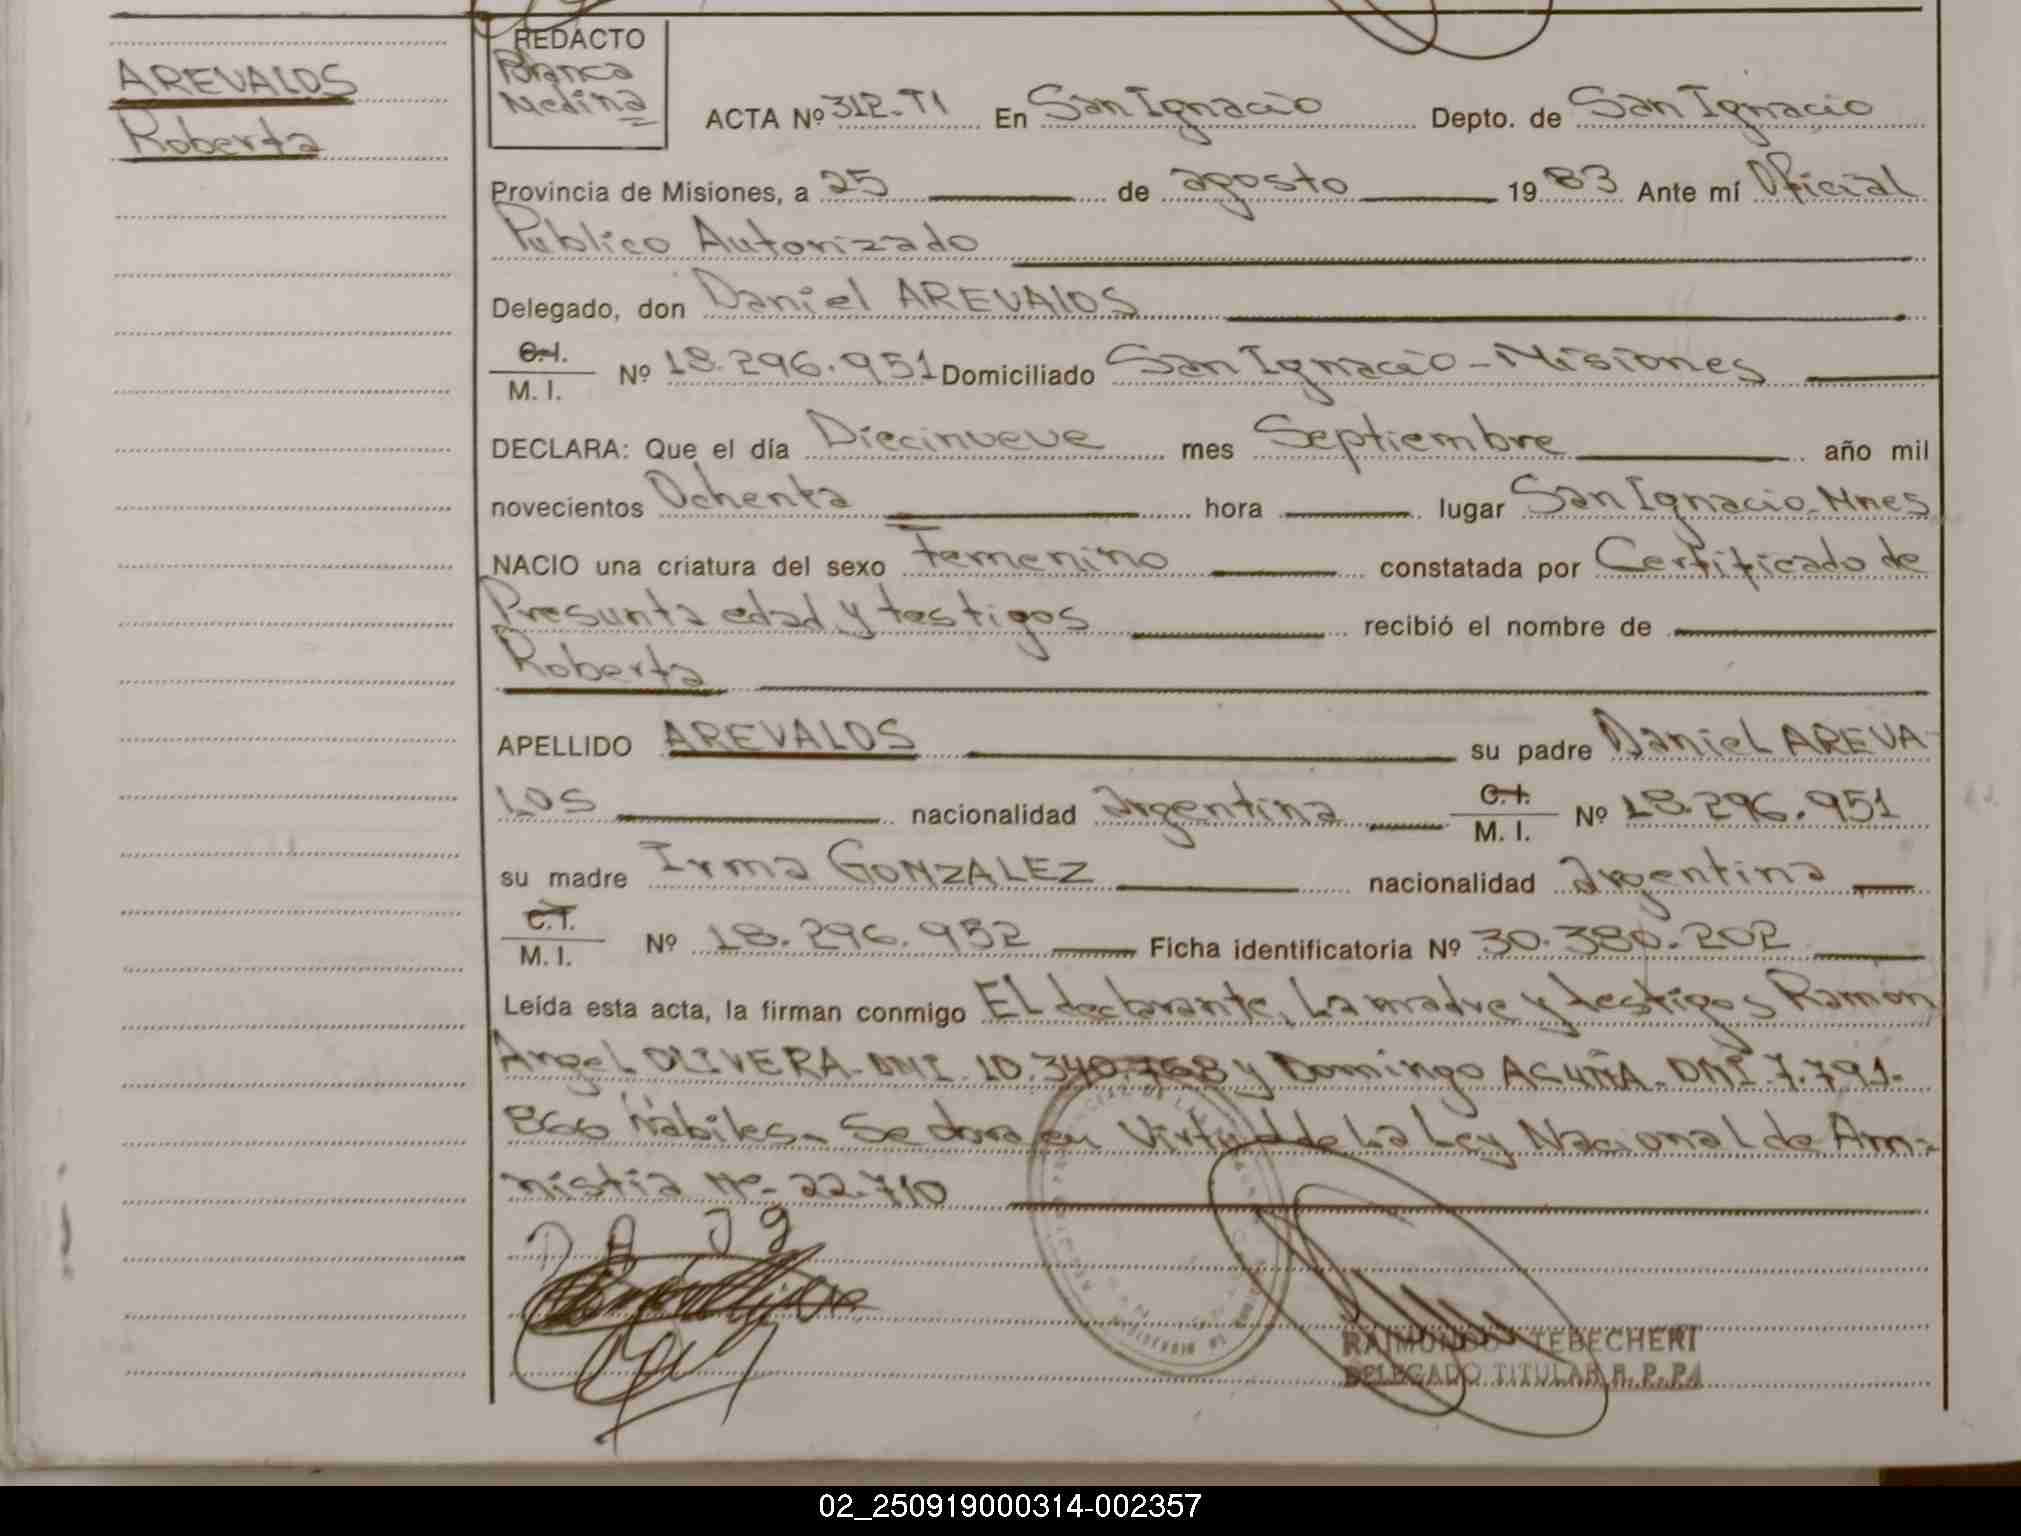 AREVALOS
Roberta
REDACTO
Blanca
Medina
ACTA Nº 312-T1 En San Ignacio Depto. de San Ignacio
Provincia de Misiones, a 25 de agosto 1983 Ante mí Oficial
Publico Autorizado
Delegado, don Daniel AREVALOS
C.I.
M. I. Nº 18.296.951 Domiciliado San Ignacio - Misiones
DECLARA: Que el día Diecinueve mes Septiembre año mil
novecientos Ochenta hora lugar San Ignacio-Mnes
NACIO una criatura del sexo Femenino constatada por Certificado de
Presunta edad y testigos recibió el nombre de
Roberta
APELLIDO AREVALOS su padre Daniel AREVA-
LOS nacionalidad argentina C.I. M. I. Nº 18.296.951
su madre Irma GONZALEZ nacionalidad argentina
C.I.
M. I. Nº 18.296.952 Ficha identificatoria Nº 30.380.202
Leída esta acta, la firman conmigo El declarante, La madre y testigos Ramón
Angel OLIVERA - DNI. 10.340.768 y Domingo ACUÑA - DNI. 7.791.
866 hábiles. Se labra en Virtud de La Ley Nacional de Am-
nistia Nº 22.710
D A I g
RAIMUNDO TEBECHERI
DELEGADO TITULAR R. P. P.
02_250919000314-002357